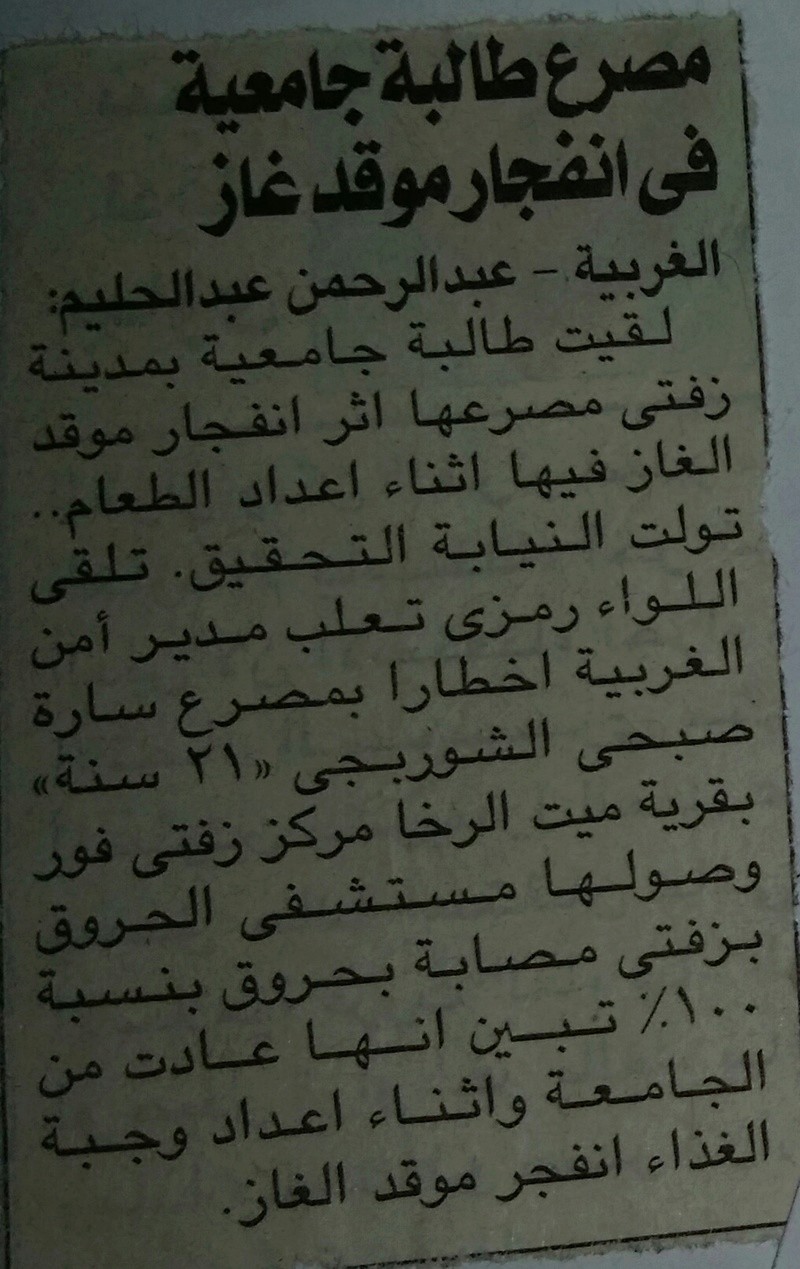 مصرع طالبة جامعية
فى انفجار موقد غاز
الغربية - عبدالرحمن عبدالحليم:
لقيت طالبة جامعية بمدينة
زفتى مصرعها اثر انفجار موقد
الغاز فيها اثناء اعداد الطعام..
تولت النيابة التحقيق. تلقى
اللواء رمزى تعلب مدير أمن
الغربية اخطارا بمصرع سارة
صبحى الشوربجى «٢١ سنة»
بقرية ميت الرخا مركز زفتى فور
وصولها مستشفى الحروق
بزفتى مصابة بحروق بنسبة
١٠٠٪ تبين انها عادت من
الجامعة واثناء اعداد وجبة
الغذاء انفجر موقد الغاز.